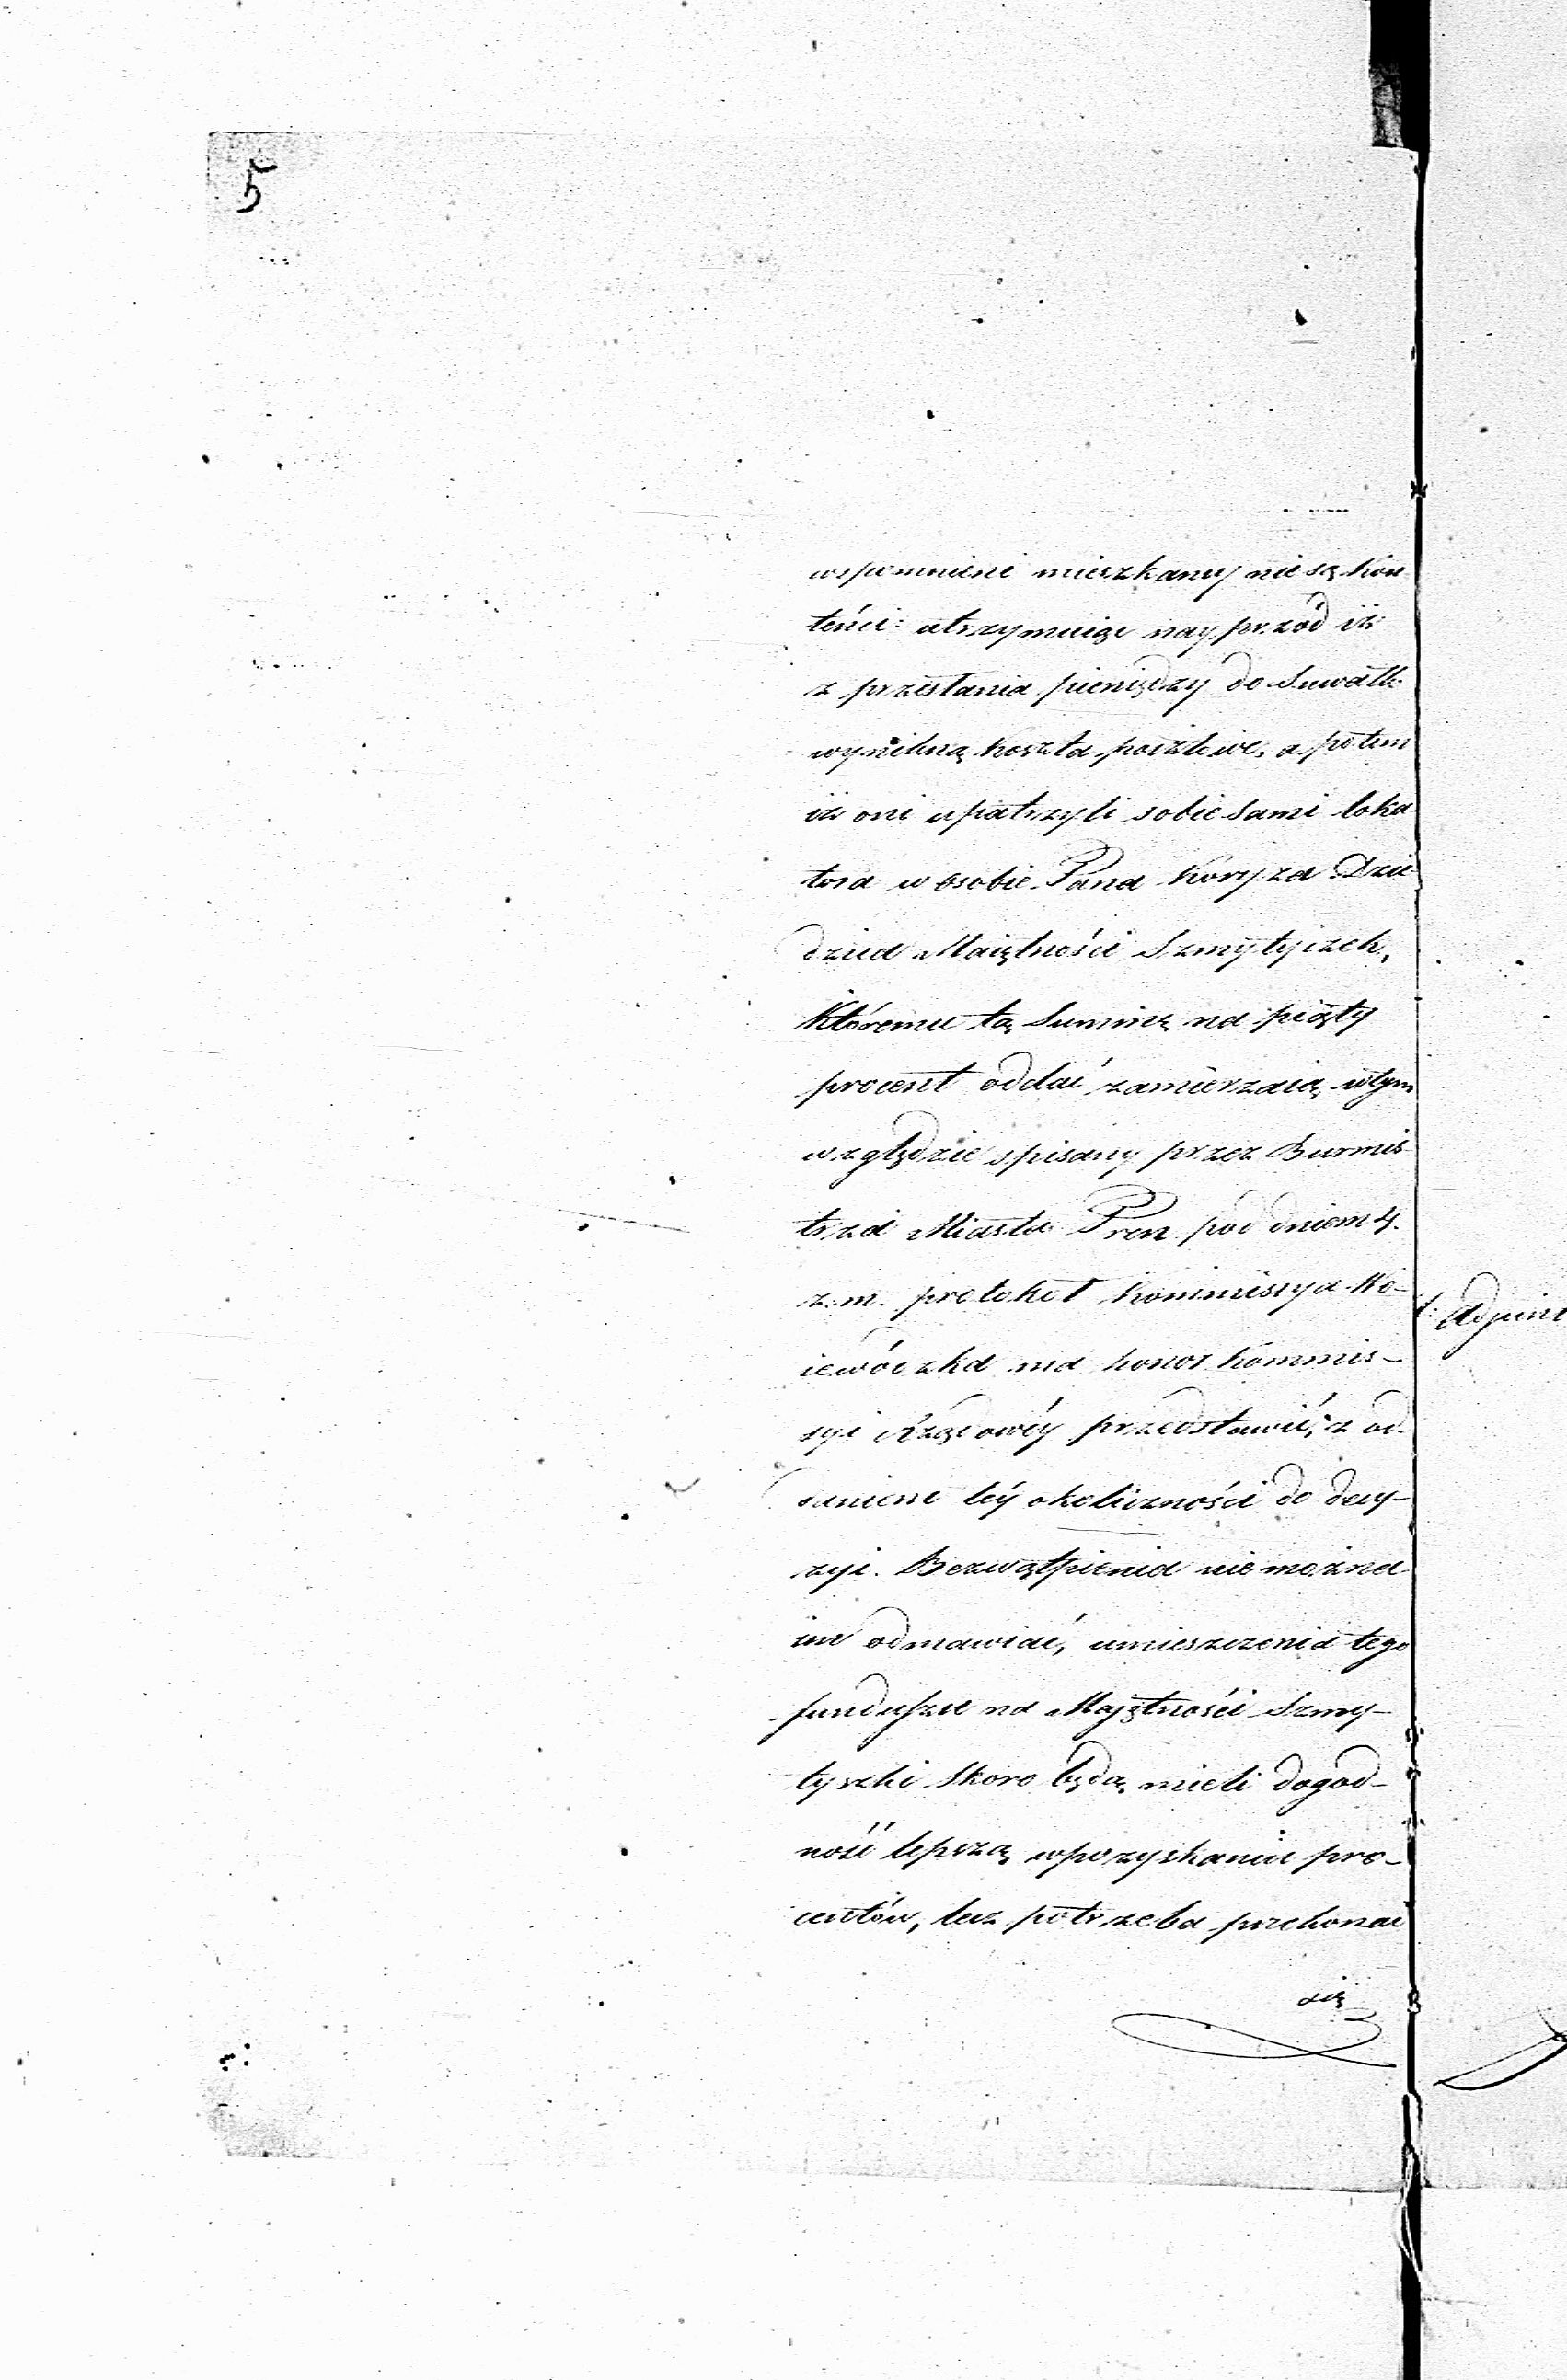 5
wspomnieni mieszkańcy nie są kon
tenci: utrzymuiąc nayprzód iż
z przesłania pieniędzy do Suwałk
wynikną koszta pocztowe, a potem
iż oni upatrzyli sobie sami loka
tora w osobie Pana Koryza Dzie
dzica Maiętności Szmytyczek,
któremu tą Summę na piąty
procent oddać zamierzaią, wtym
względzie spisany przez Burmis
trza Miasta Pren pod dniem 4.
z. m. protokoł Kommissya Wo-
iewódzka ma honor Kommis-
syi Rządowéy przedstawić, z od
daniem téy okoliczności do decy-
zyi. Bezwątpienia nie można
im odmawiać, umieszczenia tego
funduszu na Majętności Szmy-
tyszki skoro będą mieli dogod-
ność lepszą wpozyskaniu pro-
centów, lecz potrzeba przekonać
się